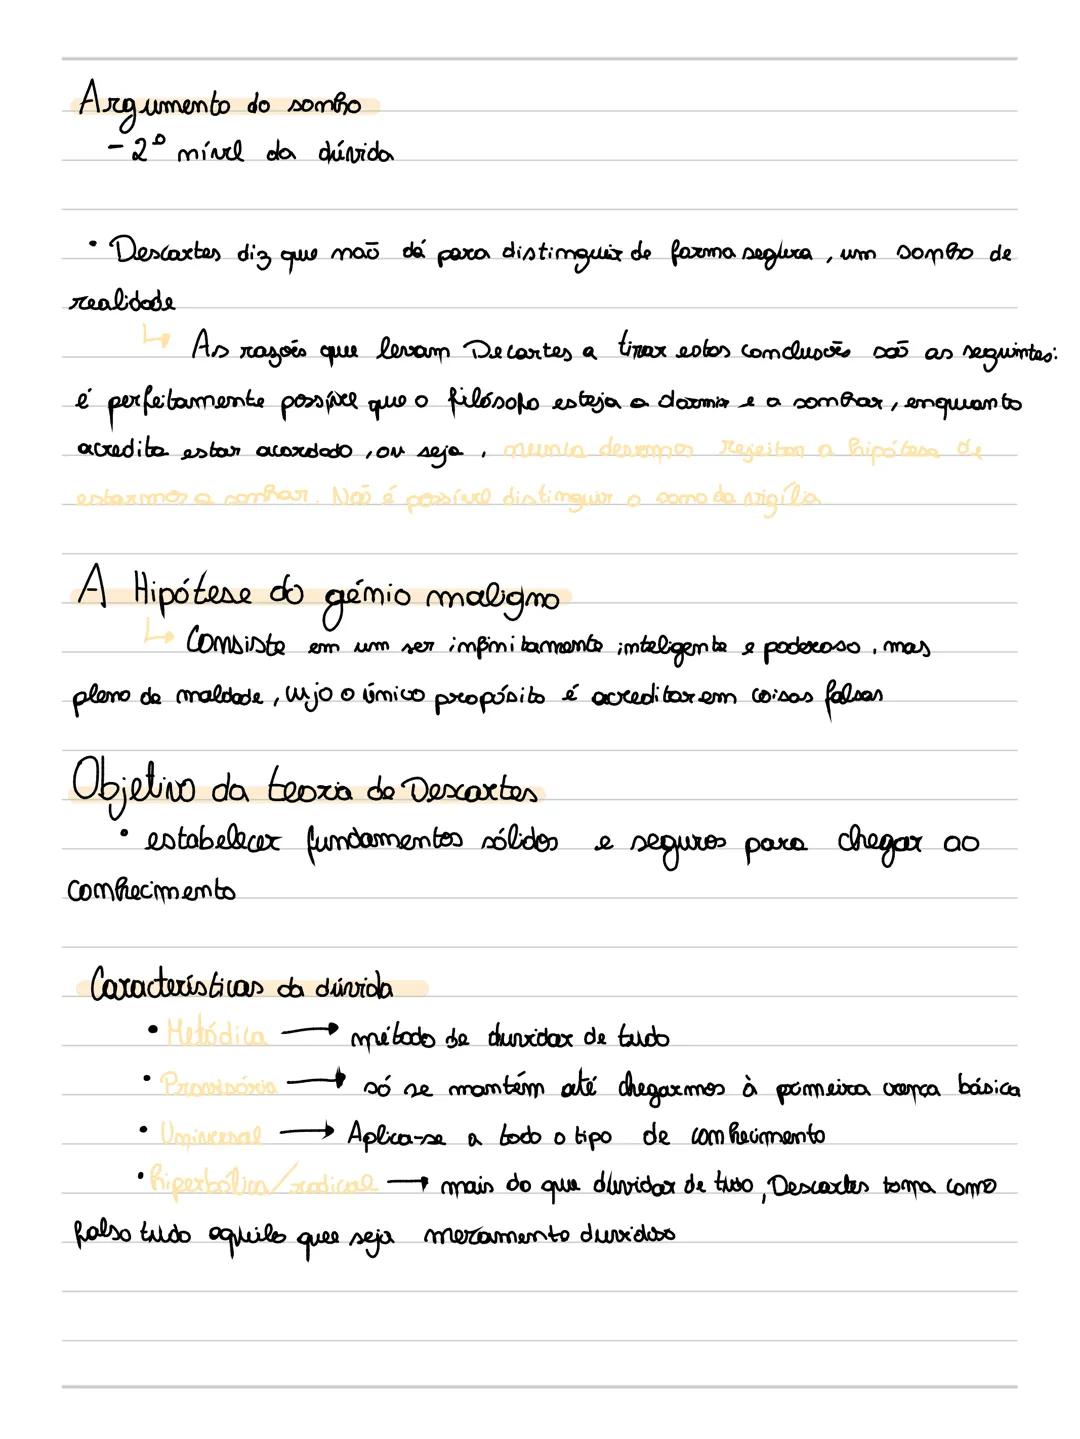 Argumento do sonho
- 2º nível da dúvida
• Descartes diz que naõ dá para distinguir de forma segura, um sonho de
realidade
↳ As razoẽs que levam Decartes a tirar estas conclusoẽs saõ as seguintes:
é perfeitamente possível que o filósofo esteja a dormir e a sonhar, enquanto
acredita estar acordado, ou seja, nunca devemos rejeitar a hipótese de
estarmos a sonhar. Naõ é possível distinguir o sono da vigília
A Hipótese do génio maligno
↳ Consiste em um ser infinitamente inteligente e poderoso, mas
pleno de maldade, cujo o único propósito é acreditar em coisas falsas
Objetivo da teoria de Descartes
• estabelecer fundamentos sólidos e seguros para chegar ao
conhecimento
Características da dúvida
• Metódica → método de duvidar de tudo
• Provisória → só se mantém até chegarmos à primeira crença básica
• Universal → Aplica-se a todo o tipo de conhecimento
• hiperbólica/radical → mais do que duvidar de tudo, Descartes toma como
falso tudo aquilo que seja meramente duvidoso